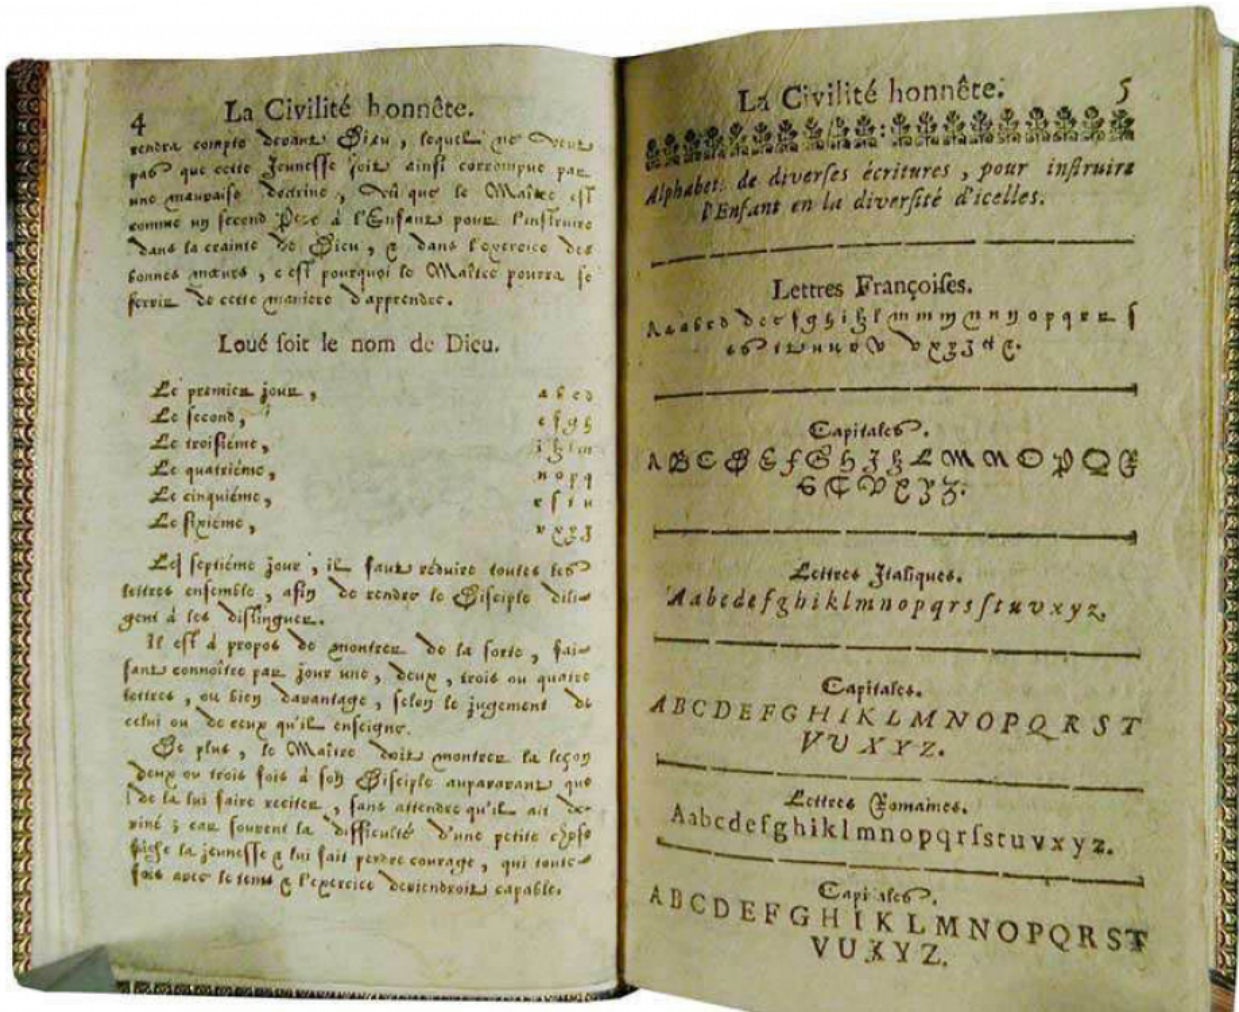 4
La Civilité honnête.
rendra compte devant Dieu, lequel ne veut
pas que cette Jeunesse soit ainsi corrompue par
une mauvaise doctrine, vû que le Maître est
comme un second Pere à l'Enfant pour l'instruire
dans la crainte de Dieu, & dans l'exercice des
bonnes mœurs, c'est pourquoi le Maître pourra se
servir de cette maniere d'apprendre.
Loué soit le nom de Dieu.
Le premier jour, a b c d
Le second, e f g h
Le troisiéme, i k l m
Le quatriéme, n o p q
Le cinquiéme, r s t u
Le sixiéme, v x y z
Le septiéme jour, il faut réduire toutes les
lettres ensemble, afin de rendre le Disciple dili-
gent à les distinguer.
Il est à propos de montrer de la sorte, fai-
sant connoître par jour une, deux, trois ou quatre
lettres, ou bien davantage, selon le jugement de
celui ou de ceux qu'il enseigne.
De plus, le Maître doit montrer la leçon
deux ou trois fois à son Disciple auparavant que
de la lui faire reciter, sans attendre qu'il ait de-
viné ; car souvent la difficulté d'une petite chose
fâche la jeunesse & lui fait perdre courage, qui toute-
fois avec le tems & l'exercice deviendroit capable.
La Civilité honnête. 5
Alphabet de diverſes écritures, pour inſtruire
l'Enfant en la diverſité d'icelles.
Lettres Françoiſes.
A a a b c d d e e f g h i k l m m m n n n o p q r r ſ
s s t t u u v v v x y z z & &.
Capitales.
A B C D E F G H I K L M N O P Q R
S T V X Y Z.
Lettres Italiques.
A a b c d e f g h i k l m n o p q r s ſ t u v x y z.
Capitales.
A B C D E F G H I K L M N O P Q R S T
V U X Y Z.
Lettres Romaines.
A a b c d e f g h i k l m n o p q r ſ s t u v x y z.
Capitales.
A B C D E F G H I K L M N O P Q R S T
V U X Y Z.